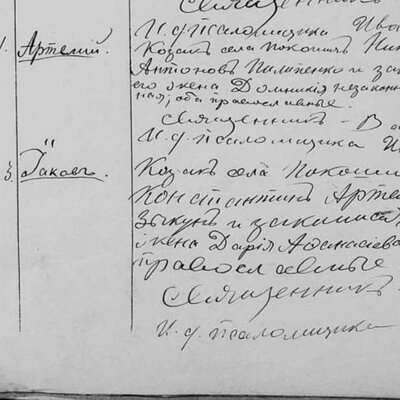 Священник
И. д. псаломщика Ива
Артемий. Козак села Покошичъ Ник
Антоновъ Пилипенко и зак
его жена Домникия незакон
ная, оба православные.
Священник - В
И. д. псаломщика И
3. Іаковъ. Козак села Покоши
Константин Арте
Зыкунъ и законная
жена Дарія Афанасіева
православные
Священник
И. д. псаломщика